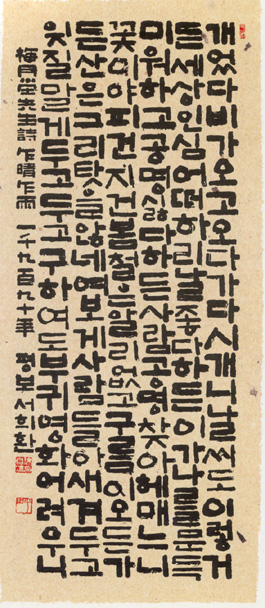 개었다비가오고오다가다시개니날씨도이렇거
든세상인심어떠하리날좋다하든이가나를문득
미워하고공명싫다하든사람공명찾아헤매느니
꽃이야피건지건봄철은알리없고구름이오든가
든산은그리탓을않네여보게사람들아새겨두고
잊질말게두고두고구하여도부귀영화어려우니
梅月堂先生詩 乍晴乍雨 一千九百九十年 평보 서희환